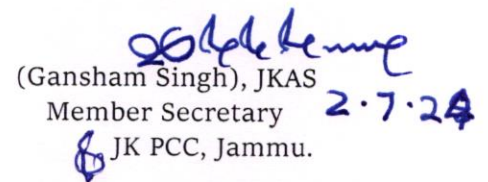 (Gansham Singh), JKAS
Member Secretary
2.7.24
JK PCC, Jammu.